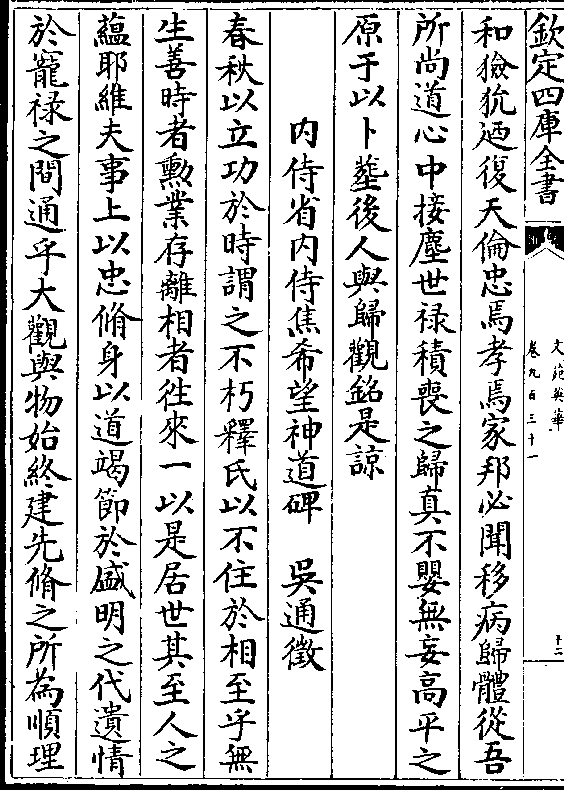 欽定四庫全書
文苑英華
卷九百三十一
十二
和獫狁迺復天倫忠焉孝焉家邦必聞移病歸體從吾
所尚道心中接塵世祿積喪之歸真不嬰無妄高平之
原于以卜塟後人與歸觀銘是諒
内侍省内侍焦希望神道碑 吳通微
春秋以立功於時謂之不朽釋氏以不住於相至乎無
生善時者勲業存離相者徃來一以是居世其至人之
蘊耶維夫事上以忠脩身以道竭節於盛明之代遺情
於寵禄之間通乎大觀與物始終建先脩之所為順理